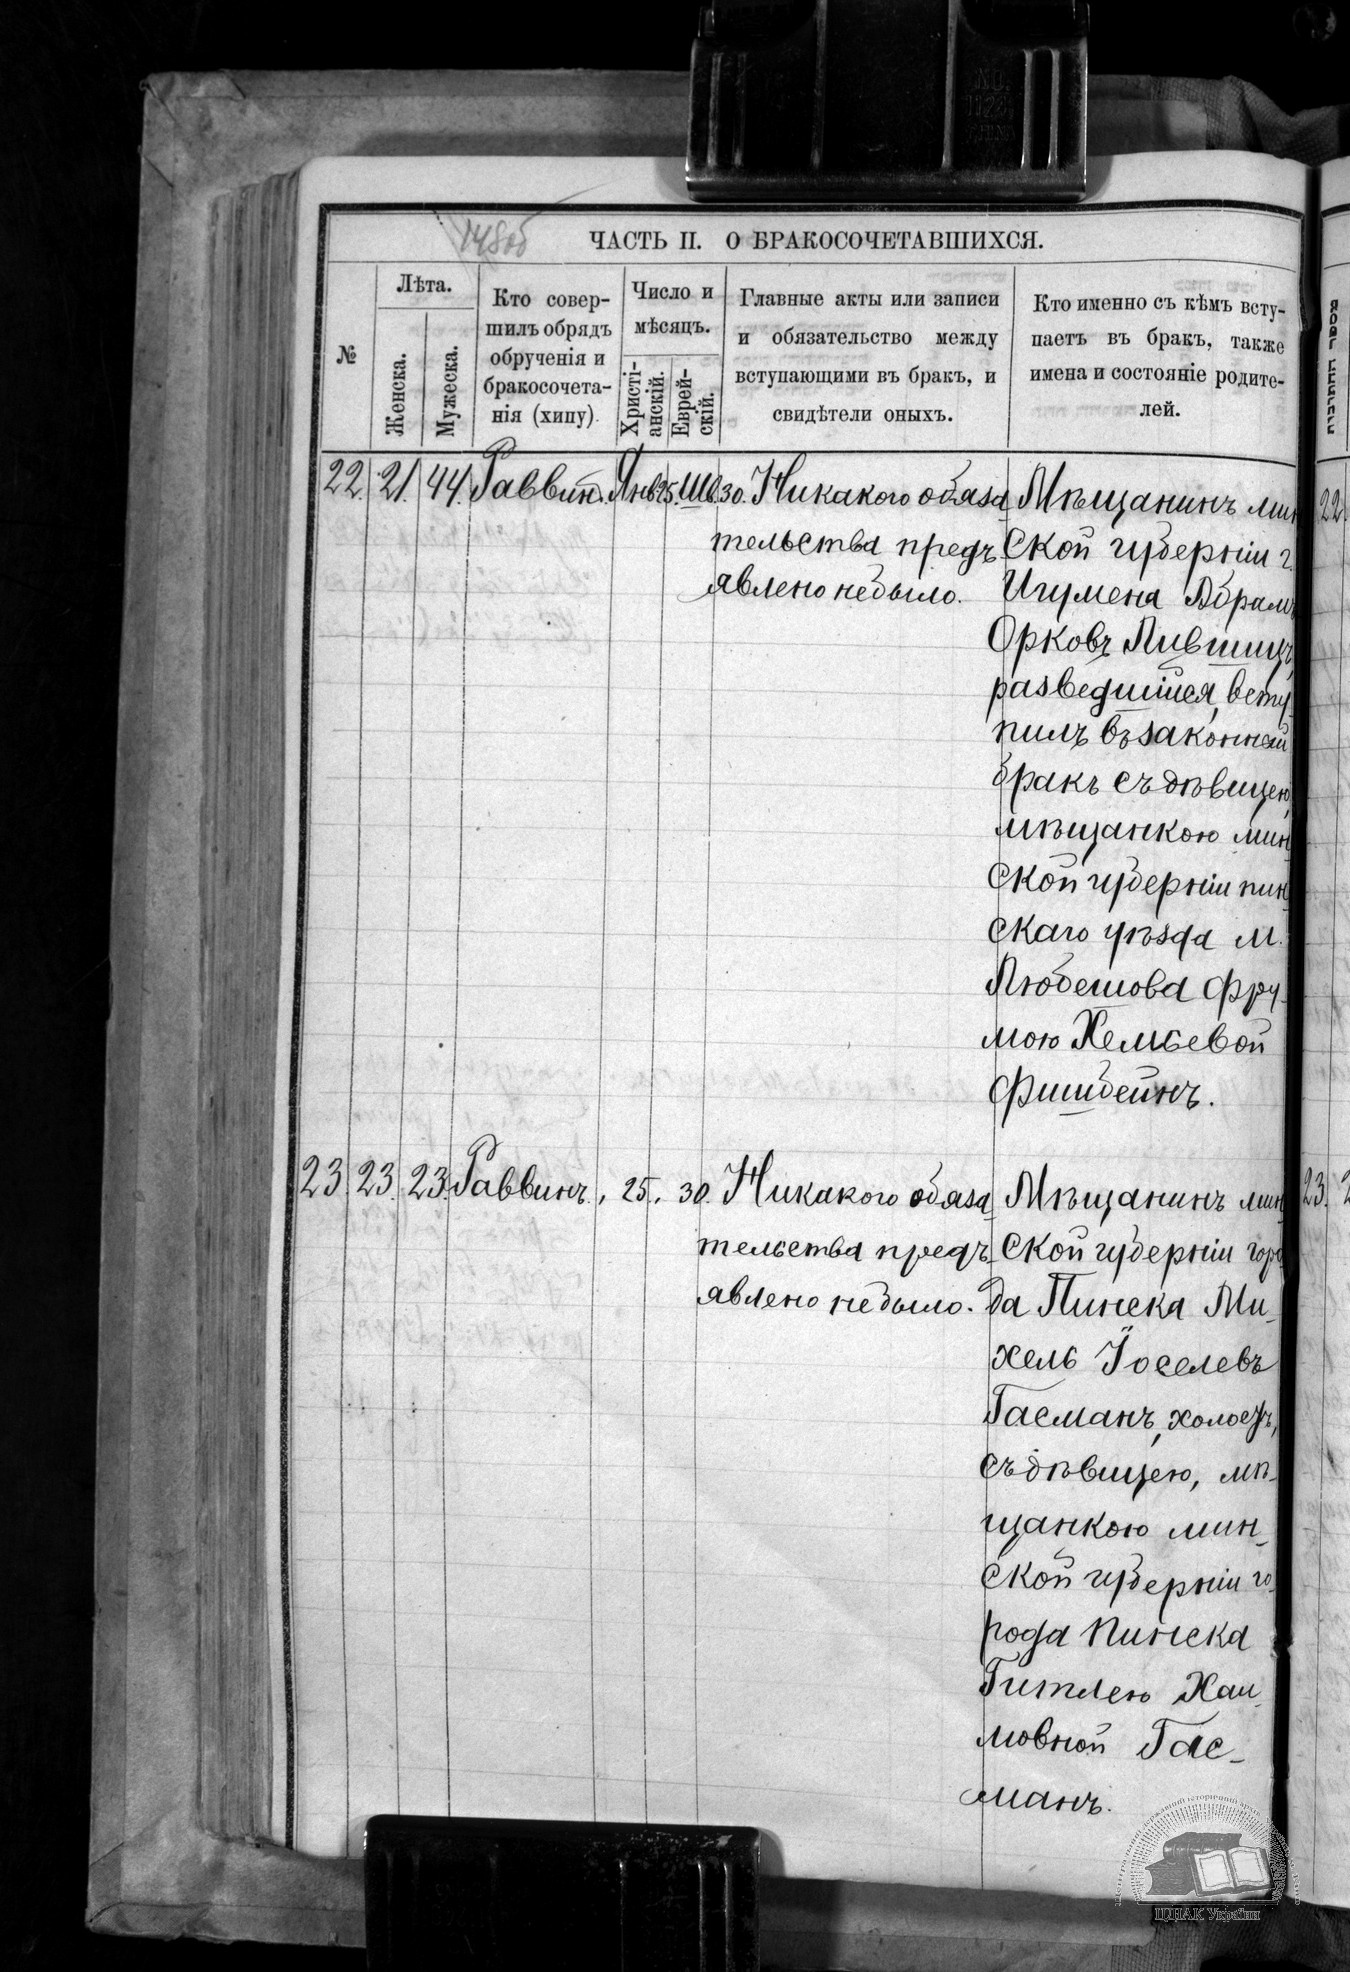 148об
ЧАСТЬ II. О БРАКОСОЧЕТАВШИХСЯ.
№
Лѣта.
Женска.
Мужеска.
Кто совер-
шилъ обрядъ
обрученія и
бракосочета-
нія (хипу).
Число и
мѣсяцъ.
Христі-
анскій.
Еврей-
скій.
Главные акты или записи
и обязательство между
вступающими въ бракъ, и
свидѣтели оныхъ.
Кто именно съ кѣмъ всту-
паетъ въ бракъ, также
имена и состояніе родите-
лей.
22. 21. 44. Раввин. Янв 25. Шв. 30. Никакого обяза
тельства предъ
явлено небыло.
Мѣщанинъ мин
ской губерніи г.
Игумена Абрамъ
Орковъ Лившицъ,
разведшійся, всту
пилъ въ законный
бракъ съ дѣвицею,
мѣщанкою мин
ской губерніи пин
скаго уѣзда м.
Любешова Фру-
мою Хемьевой
Фишбейнъ.
23. 23. 23. Раввинъ. „ 25. „ 30. Никакого обяза
тельства предъ
явлено небыло.
Мѣщанинъ мин
ской губерніи горо
да Пинска Ми
хель Іоселевъ
Гасманъ, холостъ,
съ дѣвицею, мѣ-
щанкою мин
ской губерніи го
рода Пинска
Гитлею Хаи
мовной Гас-
манъ.
22.
23. 2
ЦДІАК України